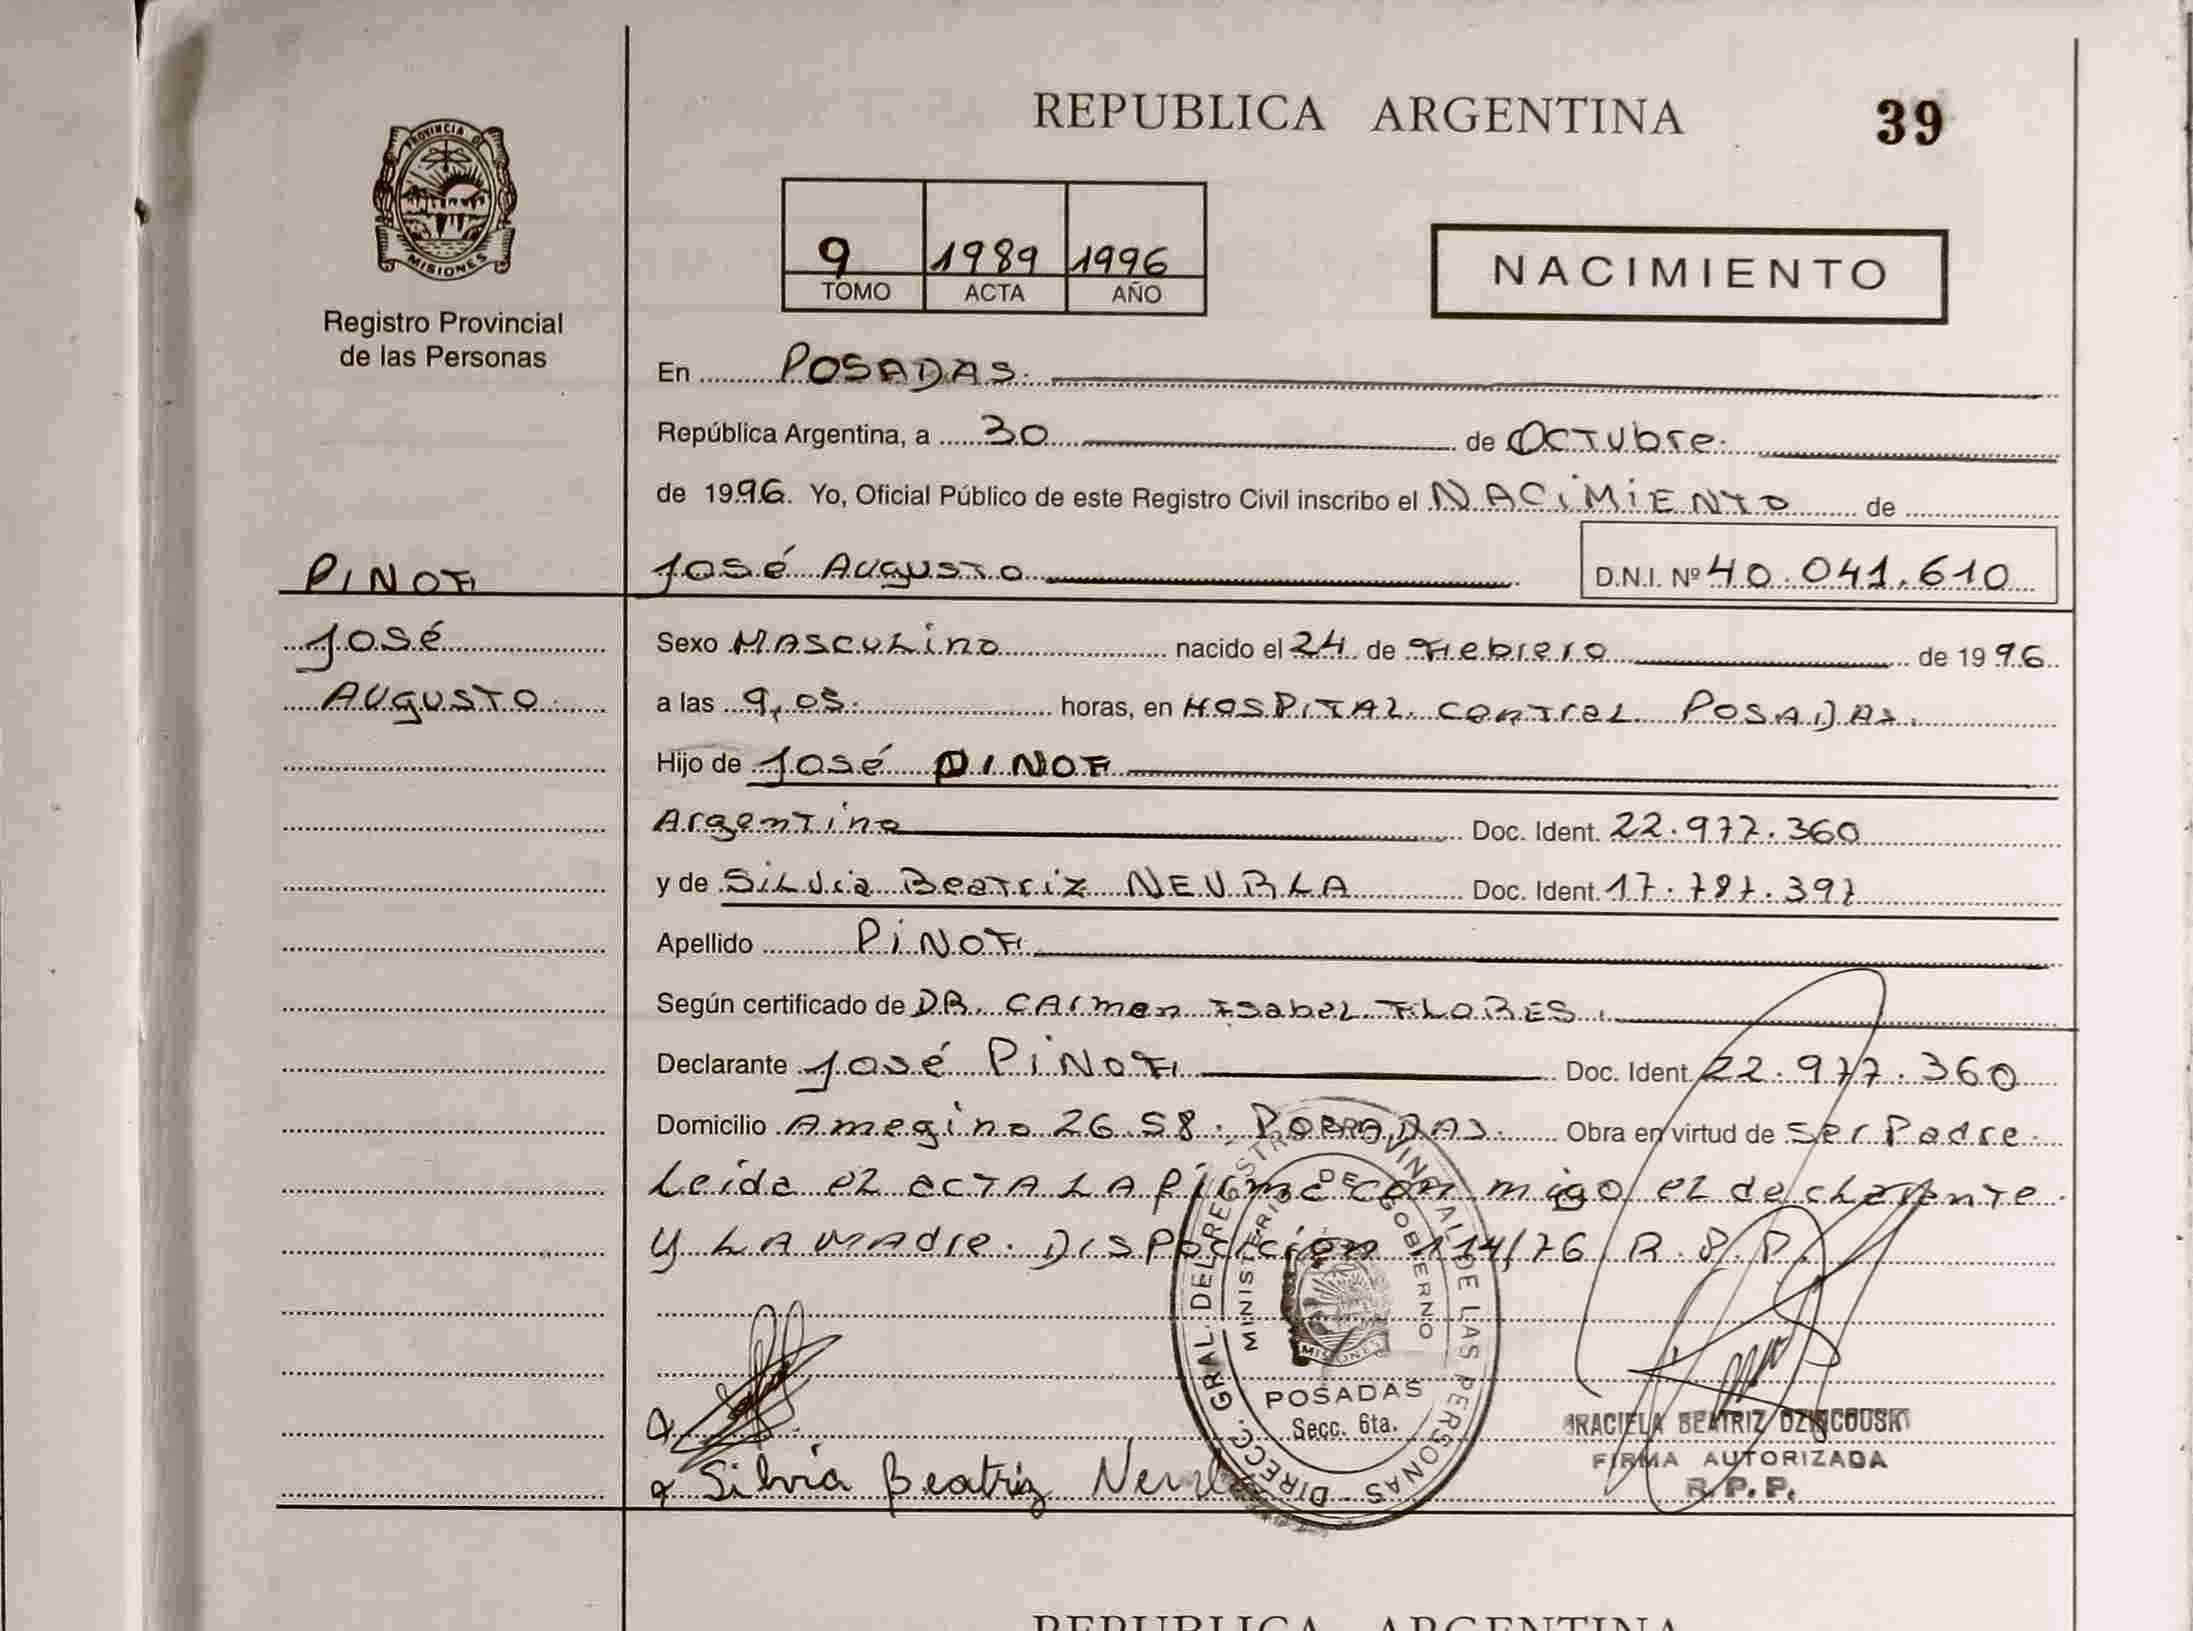 REPUBLICA ARGENTINA
39
PROVINCIA DE
MISIONES
Registro Provincial
de las Personas
9 1989 1996
TOMO ACTA AÑO
NACIMIENTO
En POSADAS.
República Argentina, a 30 de Octubre.
de 1996. Yo, Oficial Público de este Registro Civil inscribo el NACIMIENTO de
José Augusto D.N.I. Nº 40.041.610
PINOTI
José
Augusto
Sexo Masculino nacido el 24 de Febrero de 1996
a las 9,05. horas, en HOSPITAL central POSADAS.
Hijo de José PINOTI
Argentino Doc. Ident. 22.977.360
y de Silvia Beatriz NEURLA Doc. Ident. 17.787.397
Apellido PINOTI
Según certificado de DR. Carmen Isabel FLORES.
Declarante José PINOTI Doc. Ident. 22.977.360
Domicilio Amegino 2658. POSADAS. Obra en virtud de ser Padre.
Leida el acta LA firma con migo el declarante
Y LA MADre. Disposición 114/76 R.P.P.
DIRECC. GRAL. DEL REGISTRO PROVINCIAL DE LAS PERSONAS
MINISTERIO DE GOBIERNO
MISIONES
POSADAS
Secc. 6ta.
GRACIELA BEATRIZ
FIRMA AUTORIZADA
R.P.P.
Silvia Beatriz
REPUBLICA ARGENTINA